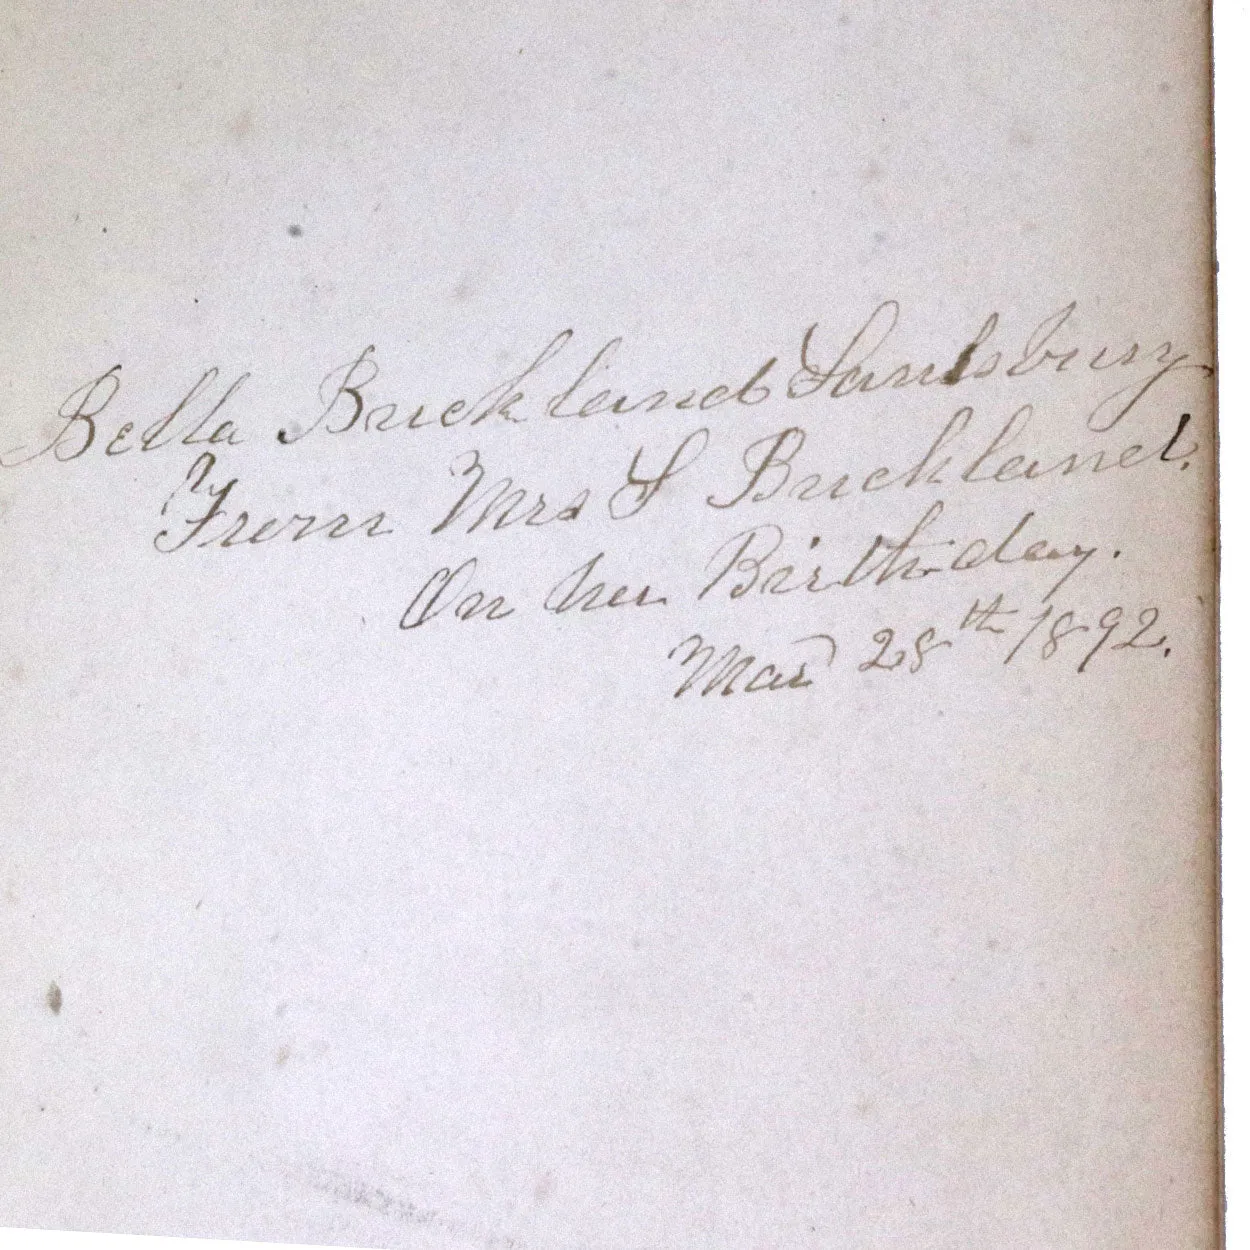 Bella Buckland Saulsbury
From Mrs S Buckland.
On her Birthday.
Mar 28th 1892.